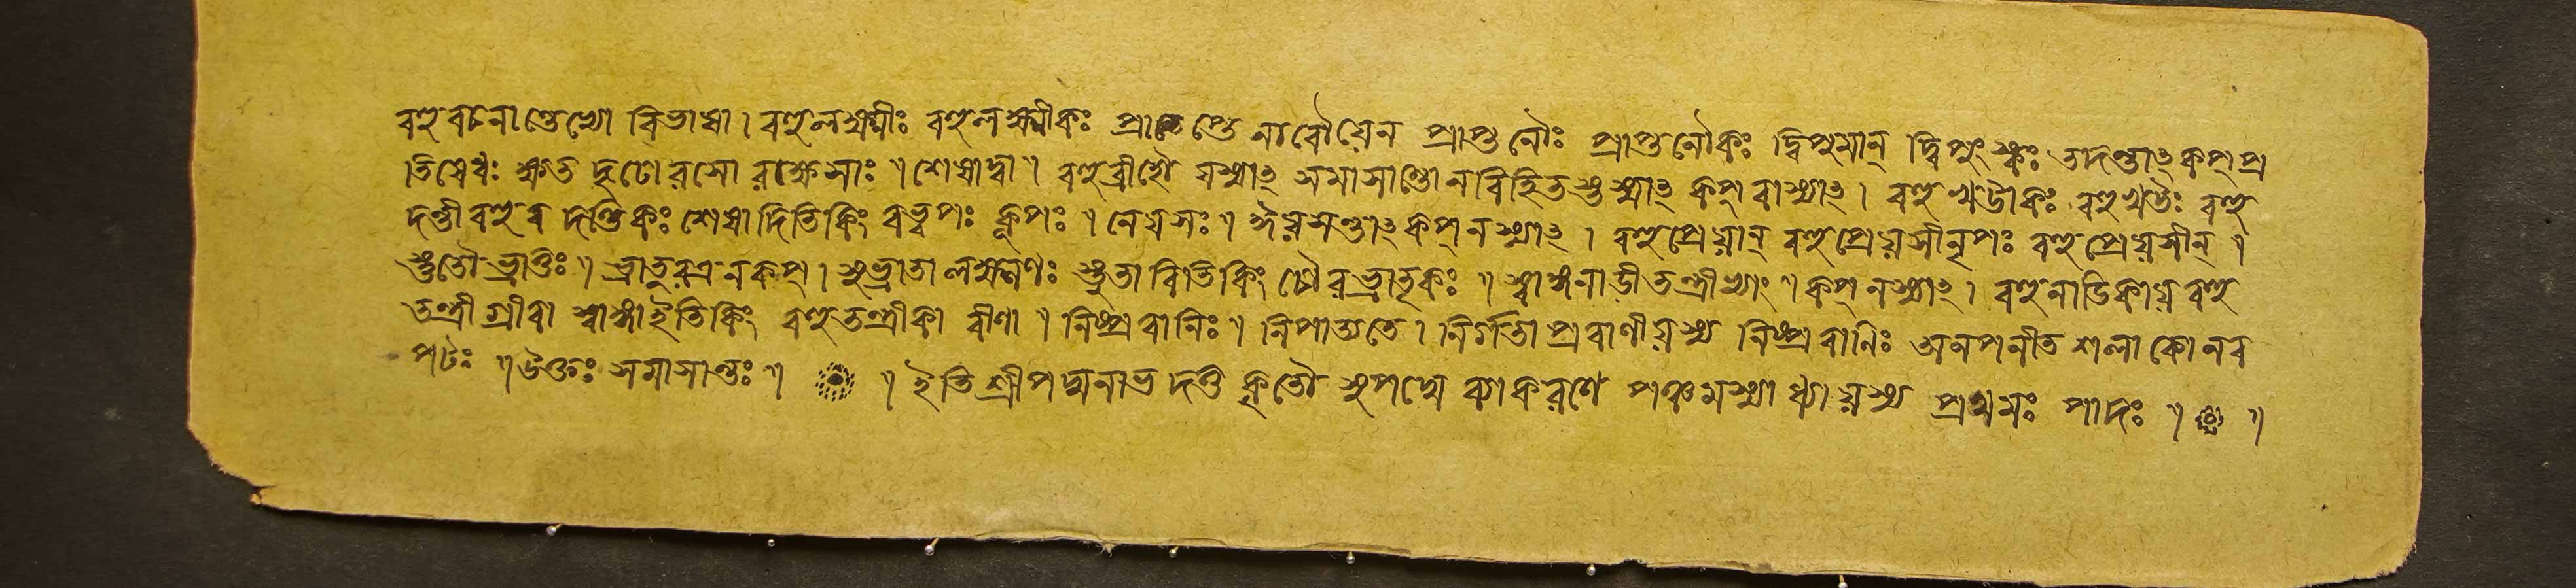 বহুবচনান্তেভ্যো বিভাষা। বহুলক্ষ্মীঃ বহুলক্ষ্মীকঃ প্রাতেন্তে নাবৌয়েন প্রাপ্তনৌঃ প্রাপ্তনৌকঃ দ্বিপুমান্ দ্বিপুংস্কঃ তদন্তাৎ কপ্ প্র
তিষেধঃ ॥ শেষাদ্বা ॥ বহুব্রীহৌ যস্মাৎ সমাসান্তো ন বিহিতস্তস্মাৎ কপ্ বাস্যাৎ। বহুখট্বাকঃ বহুখট্বঃ বহু
দণ্ডী বহুব দণ্ডিকঃ শেষাদিতি কিং ॥ নেয়সঃ ॥ ঈয়সন্তাৎ কপ্ ন স্যাৎ। বহুপ্রেয়ান্ বহুপ্রেয়সী নৃপঃ বহুপ্রেয়সীন্ ॥
স্তুতৌ ভ্রাতুঃ ॥ ভ্রাতুরত্র ন কপ্। সুভ্রাতা লক্ষ্মণঃ স্তুতাবিতি কিং চৌরভ্রাতৃকঃ ॥ স্বাঙ্গনাড়ীতন্ত্রীভ্যাং ॥ কপ্ ন স্যাৎ। বহুনাডিকায় বহু
তন্ত্রী গ্রীবা স্বাঙ্গাইতি কিং বহুতন্ত্রীকা বীণা ॥ নিষ্প্রবানিঃ ॥ নিপাত্যতে। নির্গতা প্রবাণীয়স্য নিষ্প্রবানিঃ অনপনীত শলাকো নব
পটঃ ॥ উক্তঃ সমাসান্তঃ ॥ ॥ ইতি শ্রীপদ্মনাভ দত্ত কৃতৌ সুপদ্মে ব্যাকরণে পঞ্চমস্যাধ্যায়স্য প্রথমঃ পাদঃ ॥ ॥